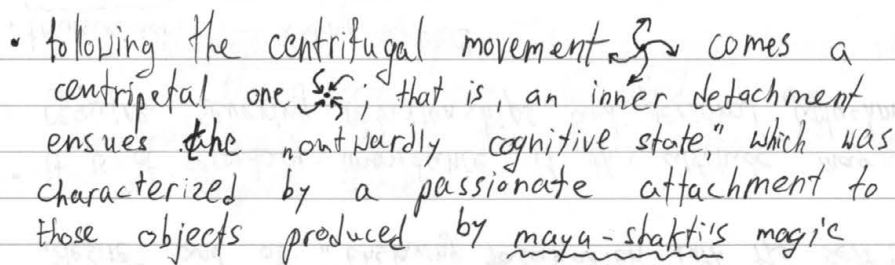 • following the centrifugal movement comes a
centripetal one ; that is, an inner detachment
ensues the „outwardly cognitive state," which was
characterized by a passionate attachment to
those objects produced by maya-shakti's magic